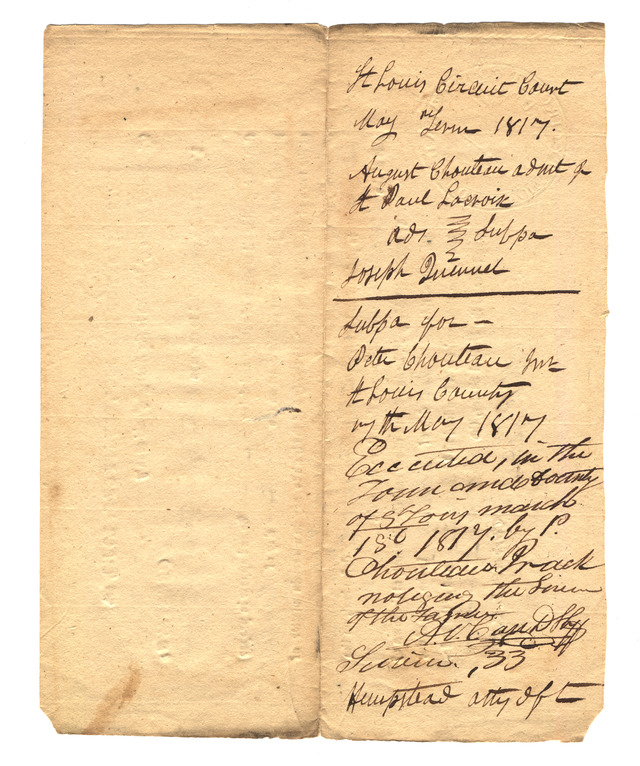 St Louis Circuit Court
May Term 1817.
August Chouteau admt of
St Paul Lacroix
ads. Subpa
Joseph
Subpa for –
Peter Chouteau Jnr
St Louis County
7th May 1817
Executed, in the
Town and County
of St Louis march
1st 1817. by P.
Chouteau
the
of the
D Shff
, 33
Hempstead atty dft